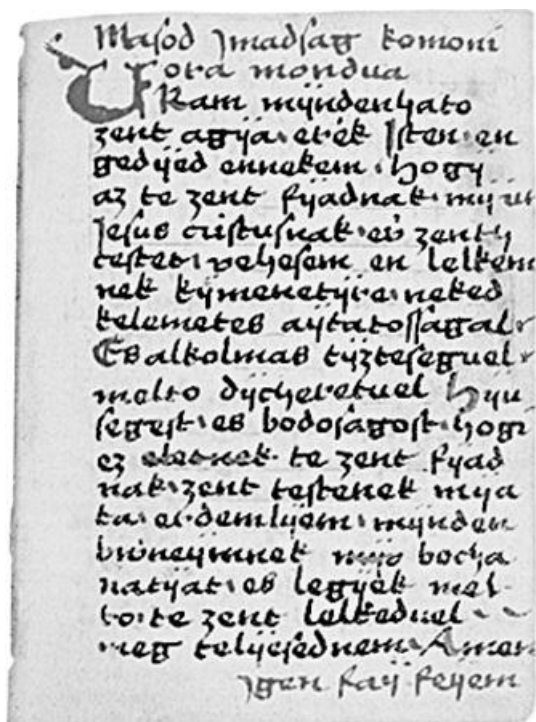 Masod ymadsag komoni
kora mondua
Uram mÿndenhato
zent atÿa ɞrɞk Isten en
gedÿed ennekem hogÿ
az te zent fÿadnak mÿ ur
Jesus cristusnak ɞ zentÿ
testet vehesem en lelkem
nek kÿmenetÿre neked
kelemetes aÿtatossagal
Es alkolmas tÿzteseguel
melto dÿcheretuel hÿu
segest es bodosagost hogi
ez eletnek te zent fÿad
nak zent testenek mÿa
ta erdemlÿem mÿnden
bɞneÿmnek bocha
natÿat es legÿek mel
to te zent lelkeduel
meg telÿesednem Amen
ygen faÿ feÿem